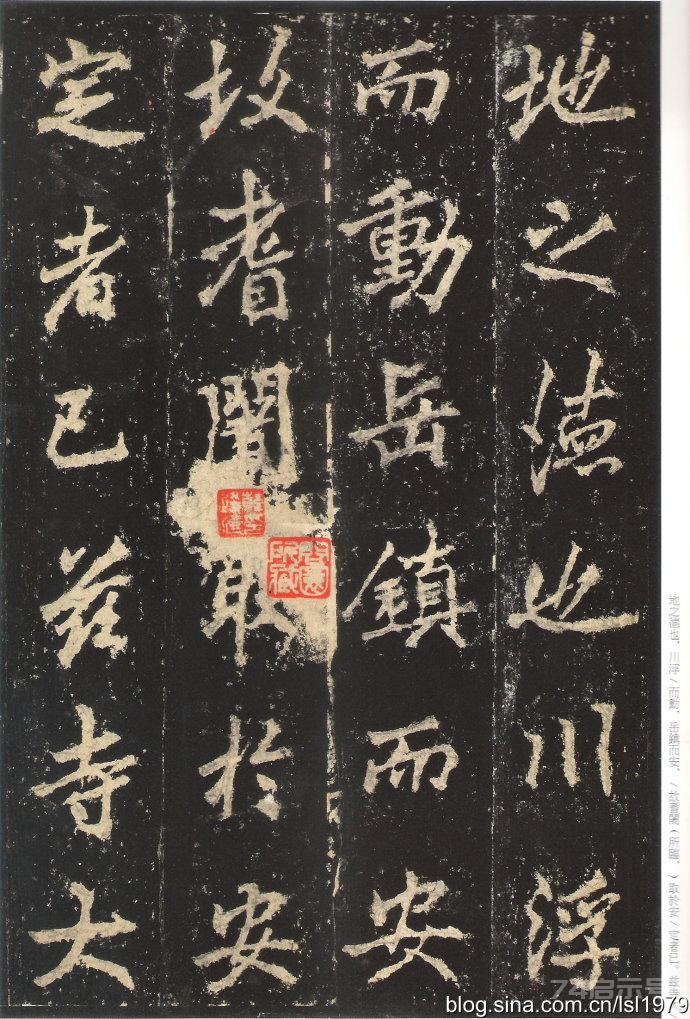 地之德也川浮
而動岳鎮而安
故耆闍取於安
定者已兹寺大
地之德也。川浮/而動，岳鎮而安，/故耆闍（所臨，）取於安/定者已。兹寺
74启示号
blog.sina.com.cn/lsl1979